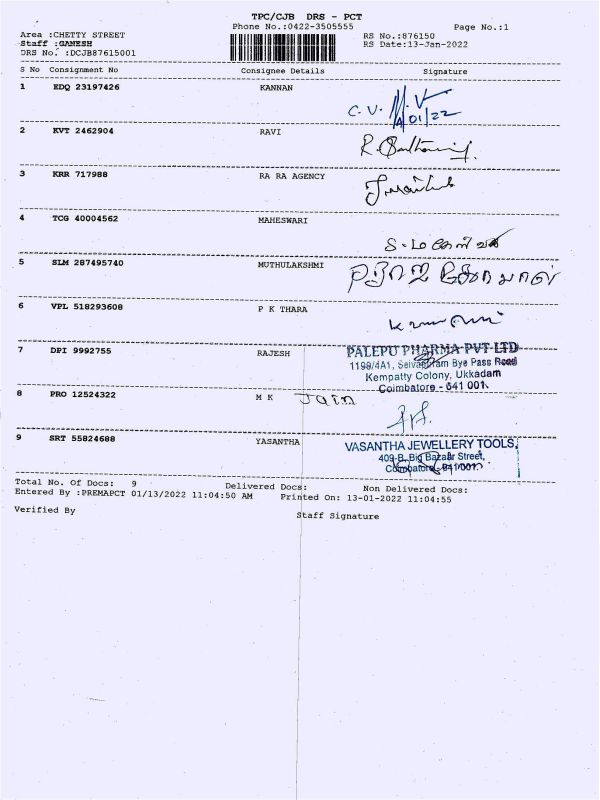 TPC/CJB DRS - PCT
Phone No.:0422-3505555 Page No.:1
Area :CHETTY STREET RS No.:876150
Staff :GANESH RS Date:13-Jan-2022
DRS No. :DCJB87615001
S No Consignment No Consignee Details Signature
1 EDQ 23197426 KANNAN
C.V. 01/22
2 KVT 2462904 RAVI
3 KRR 717988 RA RA AGENCY
4 TCG 40004562 MAHESWARI
5 SLM 287495740 MUTHULAKSHMI
6 VPL 518293608 P K THARA
7 DPI 9992755 RAJESH
PALEPU PHARMA PVT LTD
1199/4A1, Selvapuram Bye Pass Road
Kempatty Colony, Ukkadam
Coimbatore - 641 001.
8 PRO 12524322 M K Jain
9 SRT 55824688 YASANTHA
VASANTHA JEWELLERY TOOLS,
409-B, Big Bazaar Street,
Coimbatore - 641 001.
Total No. Of Docs: 9 Delivered Docs: Non Delivered Docs:
Entered By :PREMAPCT 01/13/2022 11:04:50 AM Printed On: 13-01-2022 11:04:55
Verified By Staff Signature